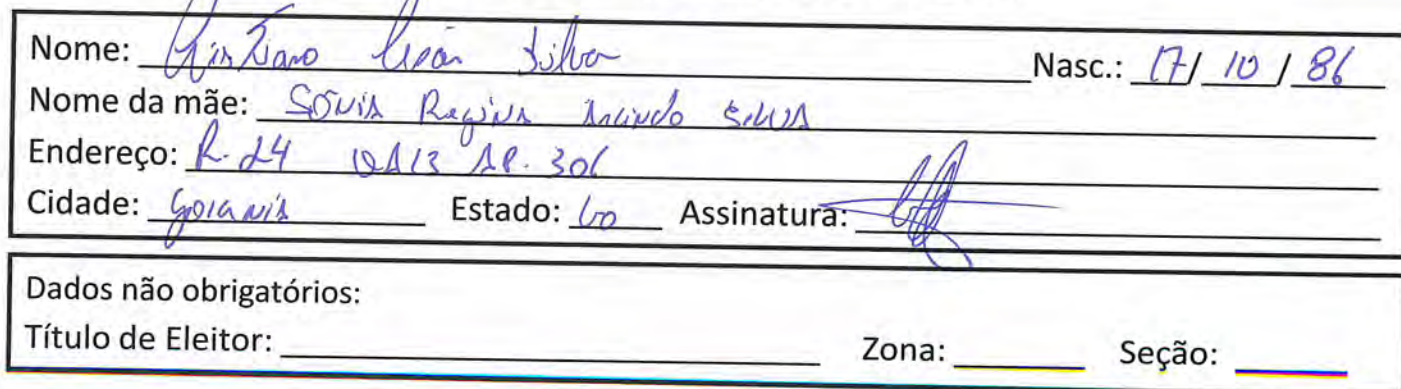 Nome: Cristiano César Silva Nasc.: 17/ 10 / 86
Nome da mãe: SÔNIA Regina Silva
Endereço: R. 24 AP. 306
Cidade: Goiania Estado: GO Assinatura:
Dados não obrigatórios:
Título de Eleitor: Zona: Seção: